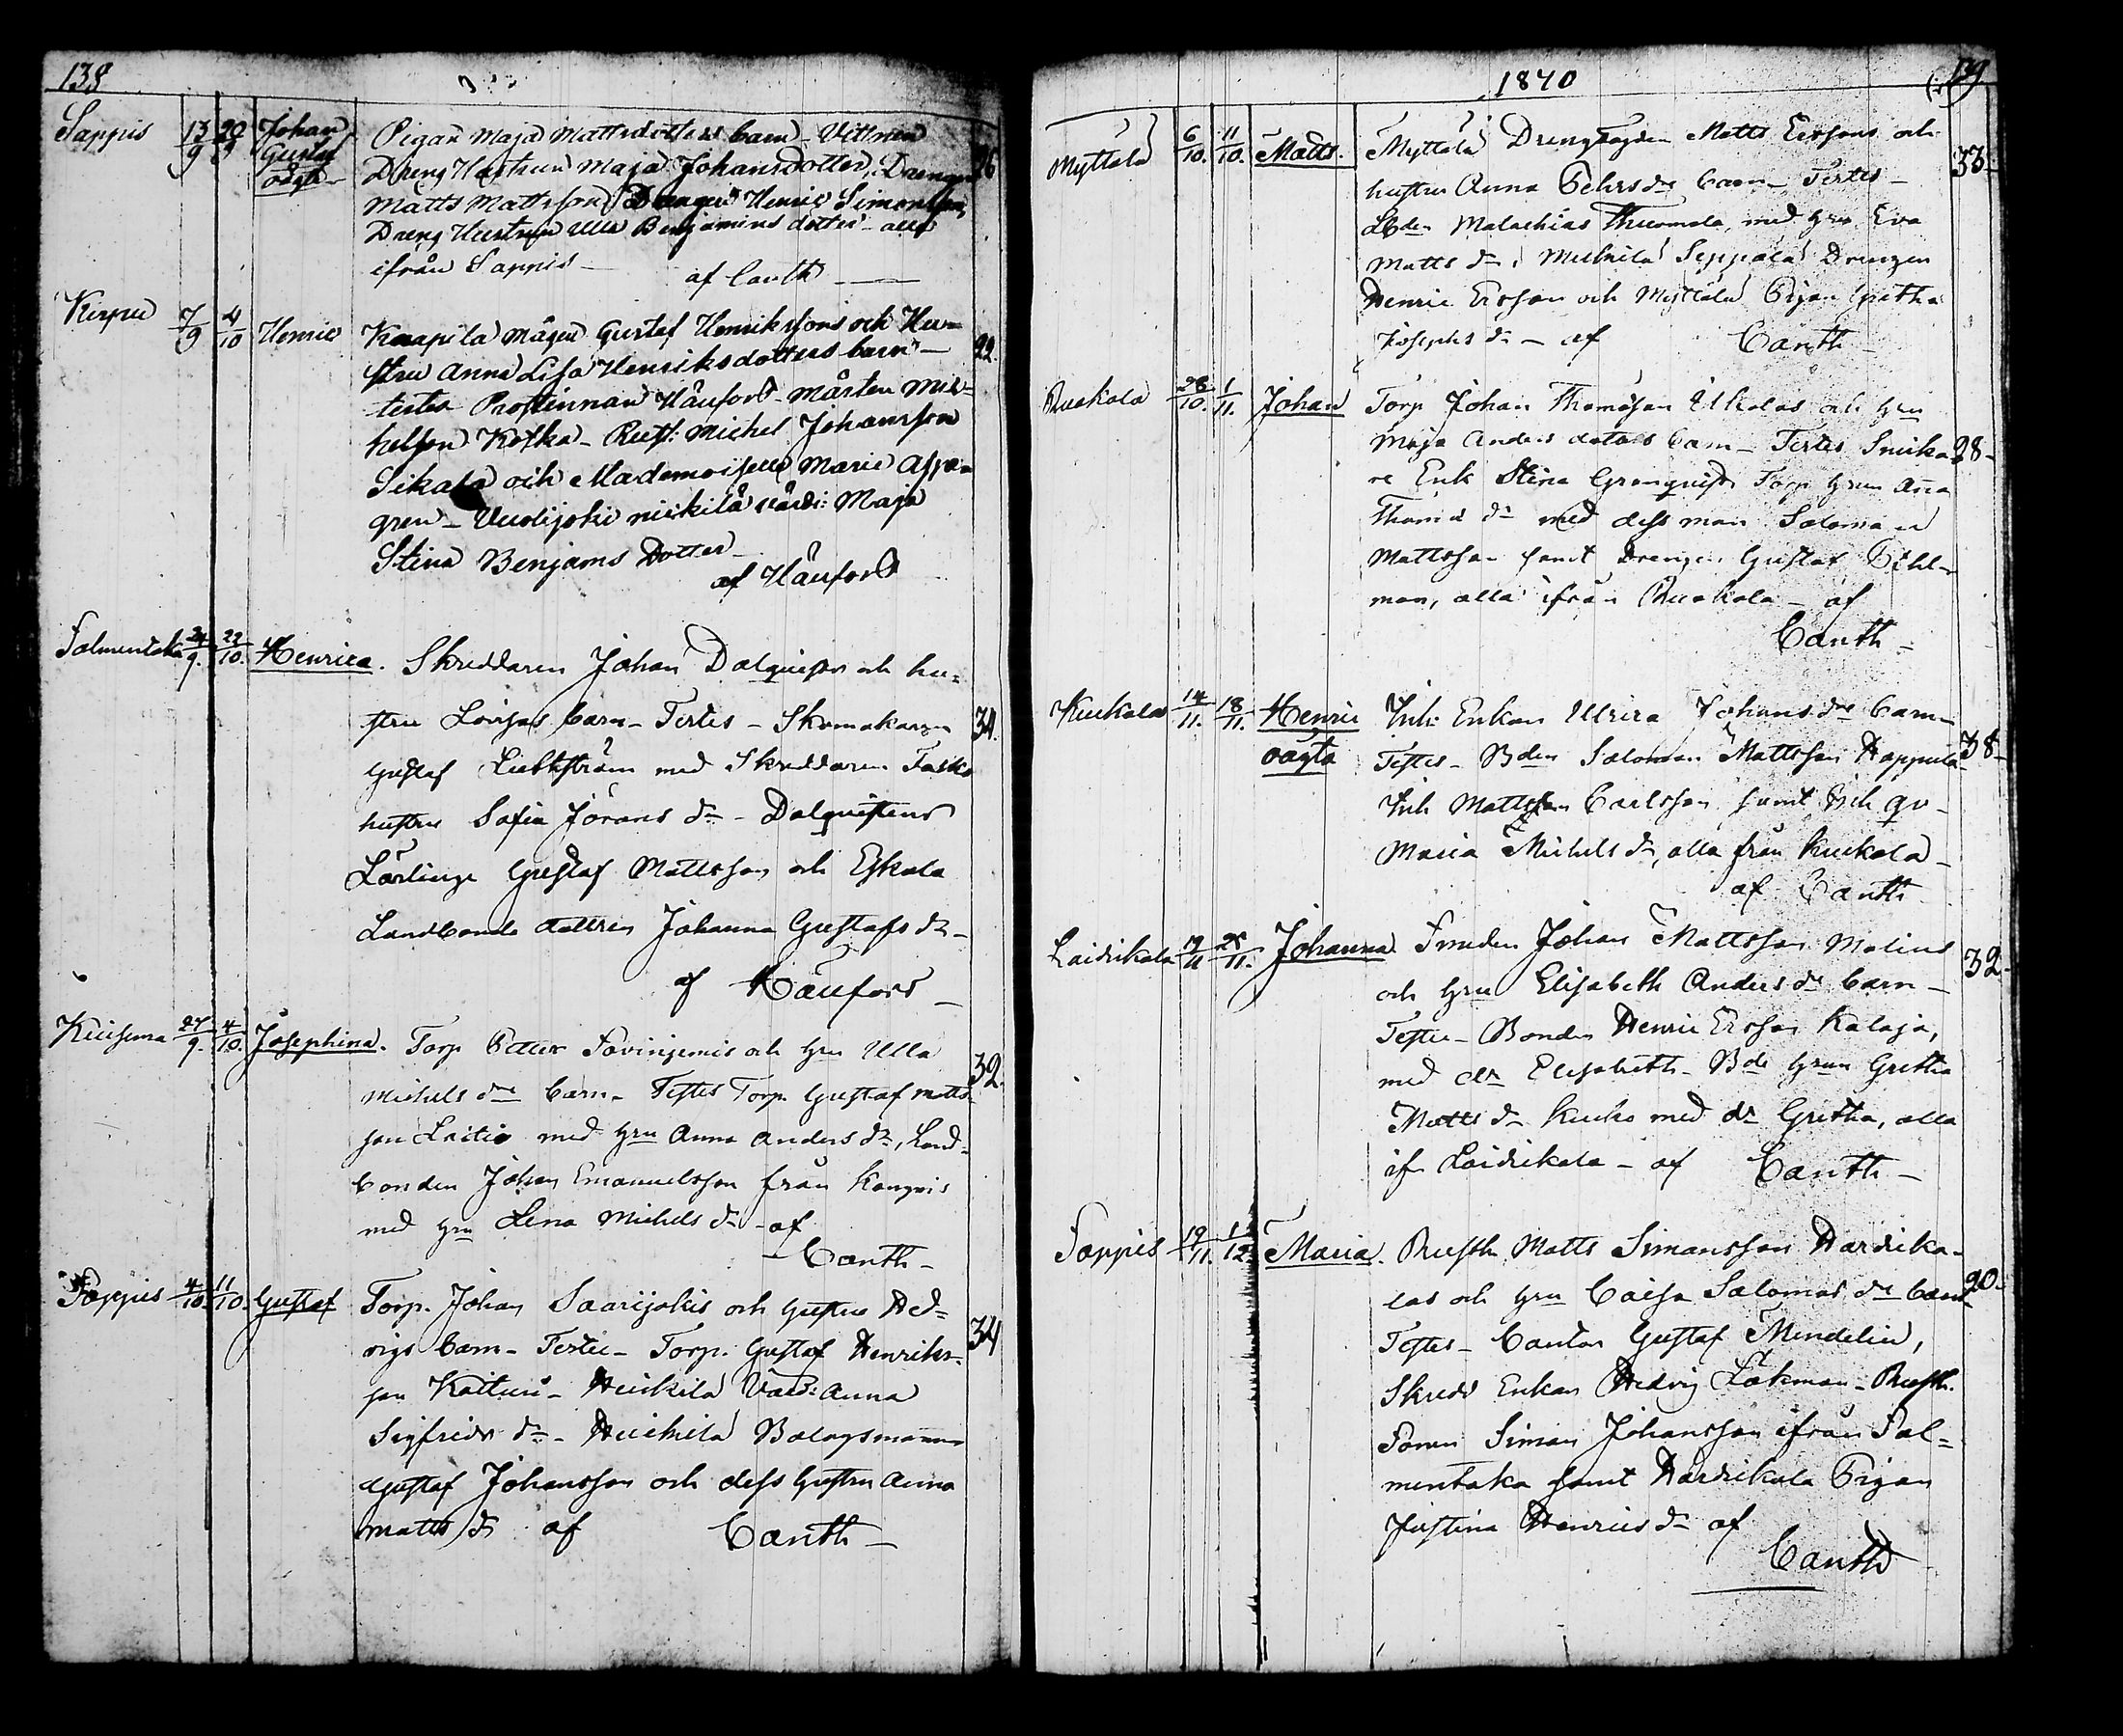 138
Sappis 13/9 20/9 Johan Pigan Maja Mattsdotters barn – Vittnen
Gustaf Dreng Hustrun Maja Johansdotter, Drengen 26
oägt – Matts Mattsson, Drengen Henric Simonsson,
Dreng Hustrun Ulla Benjamins dotter – alla
ifrån Sappis –
af Canth –
Kirpu 7/9 4/10 Henric Knapila mågen Gustaf Henrikssons och Hu- 22
stru Anna Lisa Henriksdotters barn –
testes Prostinnan Håuford – Mårten Mic-
helsson Kotka – Rust: Michel Johansson
Sikala och Mademoiselle Marie Aspe-
gren – Uudijoki niskilä värd: Maja
Stina Benjams Dotter –
af Håuford
Salmentaka 24/9. 22/10. Henrica. Skreddaren Johan Dalquist och hu-
stru Lovisas barn – Testes – Skomakaren 34.
Gustaf Liethström med Skreddaren Tasks
hustru Sofia Jörans dr – Dalquistens
Lärlinge Gustaf Mattsson och Eskola
Landbonde dottren Johanna Gustafs dr –
af Håufors –
Kuisema 27/9. 4/10. Josephina. Torp Petter Savinjemis och hru Ulla
Michels drs barn – Testes Torp. Gustaf Matts- 32.
son Laitio med hru Anna Anders dr, Land-
bonden Johan Emanuelsson från Kangois
med hru Lena Michels dr – af
Canth –
Sappis 4/10. 11/10. Gustaf Torp. Johan Saarijokis och hustru Hed-
vigs barn – Testes – Torp. Gustaf Henriks- 34
son Kaituri – Heickilä Värd: Anna
Sigfrids dr – Heickilä Bolagsmannen
Gustaf Johansson och dess hustru Anna
Matts dr af Canth –
1840
139
Myttälä 6/10. 11/10. Matts. Myttälä Drengkarlen Matts Erssons och 33
hustru Anna Pehrs drs barn – Testes –
Lbden Malachias Thuomola, med hru Eva
Matts dr, Muhnilä Seppälä Drengen
Henric Ersson och Myttälä Pigan Gretha
Josephs dr – af Canth
Ruokola 28/10. 1/11. Johan Torp Johan Thomasson Uhalas och hru
Maja Anders dotters barn – Testes Snicka- 28 –
re Enk Stina Granquist Torp hrun Anna
Thomas dr med dess man Salomon
Mattsson samt Drengen Gustaf Pihl-
man, alla ifrån Ruokola – af
Canth –
Kuckola 14/11. 18/11. Henric Inh: Enkan Ulrica Johans drs barn –
oägta Testes – Bden Salomon Mattsson Happula 38 –
Inh Mattsson Carlsson samt Inh qv –
Maria Michels dr, alla från Kuckola –
af Canth
Laidikala 19/11 25/11. Johanna. Smeden Johan Mattsson Molins
och hru Elisabeth Anders drs barn – 32 –
Testes – Bonden Henric Ersson Kalaja,
med dr Elisabeth – Bde hrun Gretha
Matts dr Kuuko med dr Gretha, alla
ifr Laidikala – af Canth –
Sappis 19/11. 1/12. Maria. Rusth Matts Simonsson Hardika-
las och hru Caisa Salomos drs barn – 20 –
Testes – Cantor Gustaf Mendelin,
Skredd Enkan Hedvig Låkman – Rusth.
Sonen Simon Johansson ifrån Sal-
mentaka samt Hardikala Pigan
Justina Henrics dr af
Canth